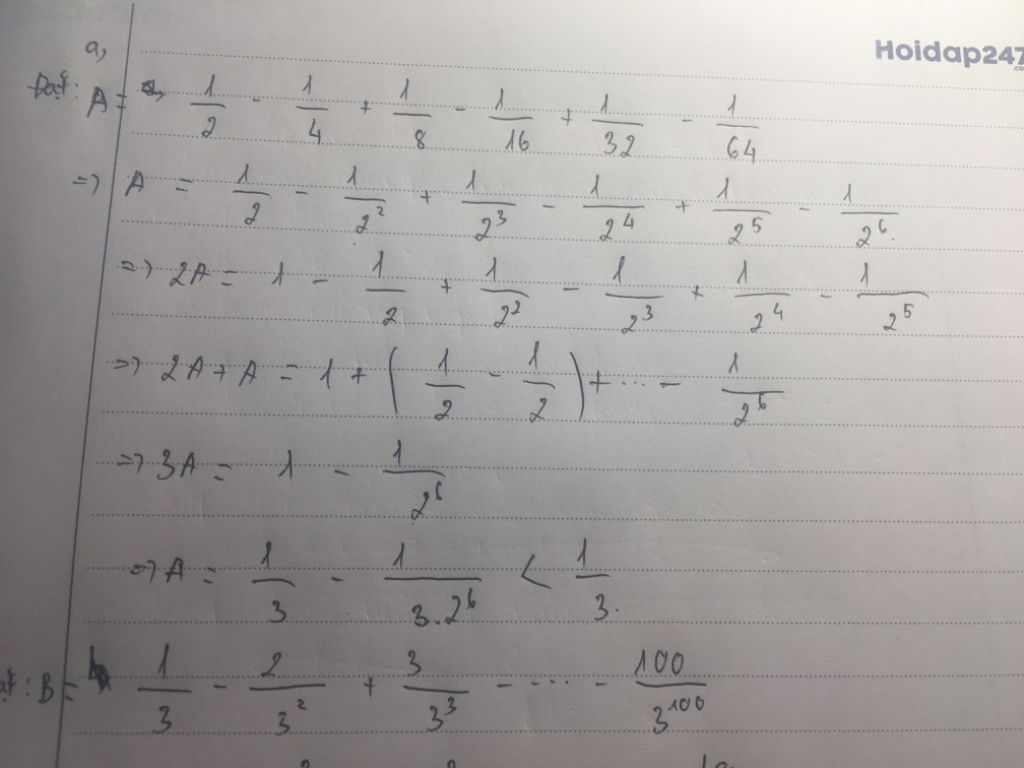 a,
Hoidap247
.co
Đặt: A = 1/2 - 1/4 + 1/8 - 1/16 + 1/32 - 1/64
=> A = 1/2 - 1/2² + 1/2³ - 1/2⁴ + 1/2⁵ - 1/2⁶.
=> 2A = 1 - 1/2 + 1/2² - 1/2³ + 1/2⁴ - 1/2⁵
=> 2A + A = 1 + (1/2 - 1/2) + ... - 1/2⁶
=> 3A = 1 - 1/2⁶
=> A = 1/3 - 1/3.2⁶ < 1/3.
: B = 1/3 - 2/3² + 3/3³ - .... - 100/3¹⁰⁰